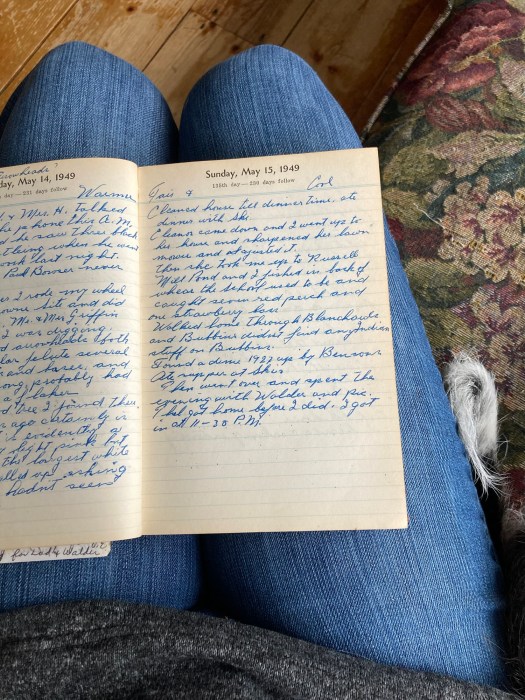 Arrowheads?
day, May 14, 1949
day — 231 days follow
Warmer
& Mrs. H. talked
the phone this A.M.
he saw three black
thing when he went
work last night.
Paul Bower never
I rode my wheel
and did
Mr. & Mrs. Griffin
I was digging.
arrowheads (both
several
and
probably had
a flaker.
Dec I found there
ago certainly is
evidently a
light pink but
the longest white
called up asking
hadn't seen
for Daddy Walder
Sunday, May 15, 1949
135th day — 230 days follow
Fair & Cool
Cleaned house till dinner time. ate
dinner with Ski.
Eleanor came down and I went up to
her house and sharpened her lawn
mower and adjusted it.
Then she took me up to Russell
Mill Pond and I fished in back of
where the school used to be and
caught seven red perch and
one strawberry bass.
Walked home through Blanchards
and Bubbins didn't find any Indian
stuff on Bubbins.
Found a dime 1927 up by Bensons
Ate supper at Skis.
Then went over and spent the
evening with Walder and Ric.
Ethel got home before I did. I got
in at 11-30 P.M.